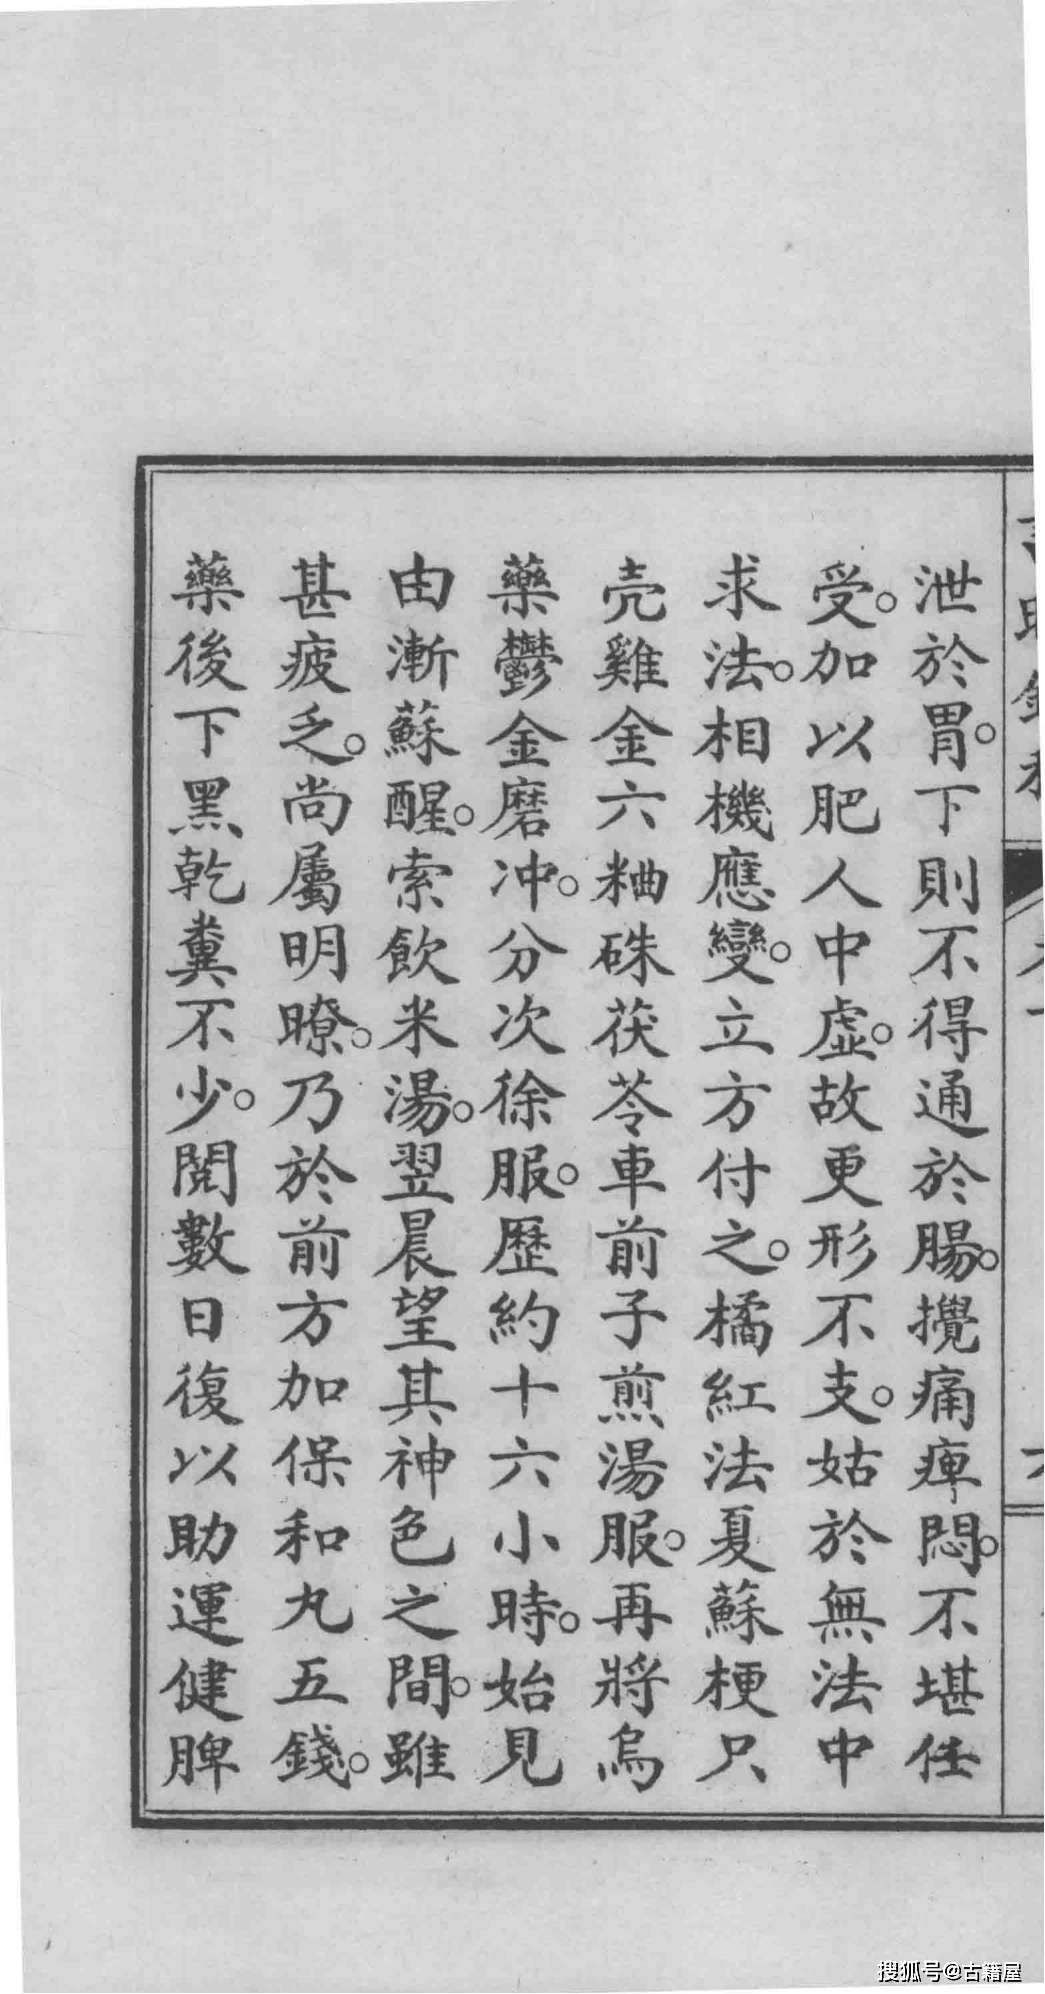 泄於胃。下則不得通於腸。攪痛痺悶。不堪任
受。加以肥人中虛。故更形不支。姑於無法中
求法。相機應變。立方付之。橘紅法夏蘇梗只
壳雞金六粬硃茯苓車前子煎湯服。再將烏
藥鬱金磨冲。分次徐服。歷約十六小時。始見
由漸蘇醒。索飲米湯。翌晨望其神色之間。雖
甚疲乏。尚屬明瞭。乃於前方加保和丸五錢。
藥後下黑乾糞不少。閱數日復以助運健脾
搜狐号@古籍屋